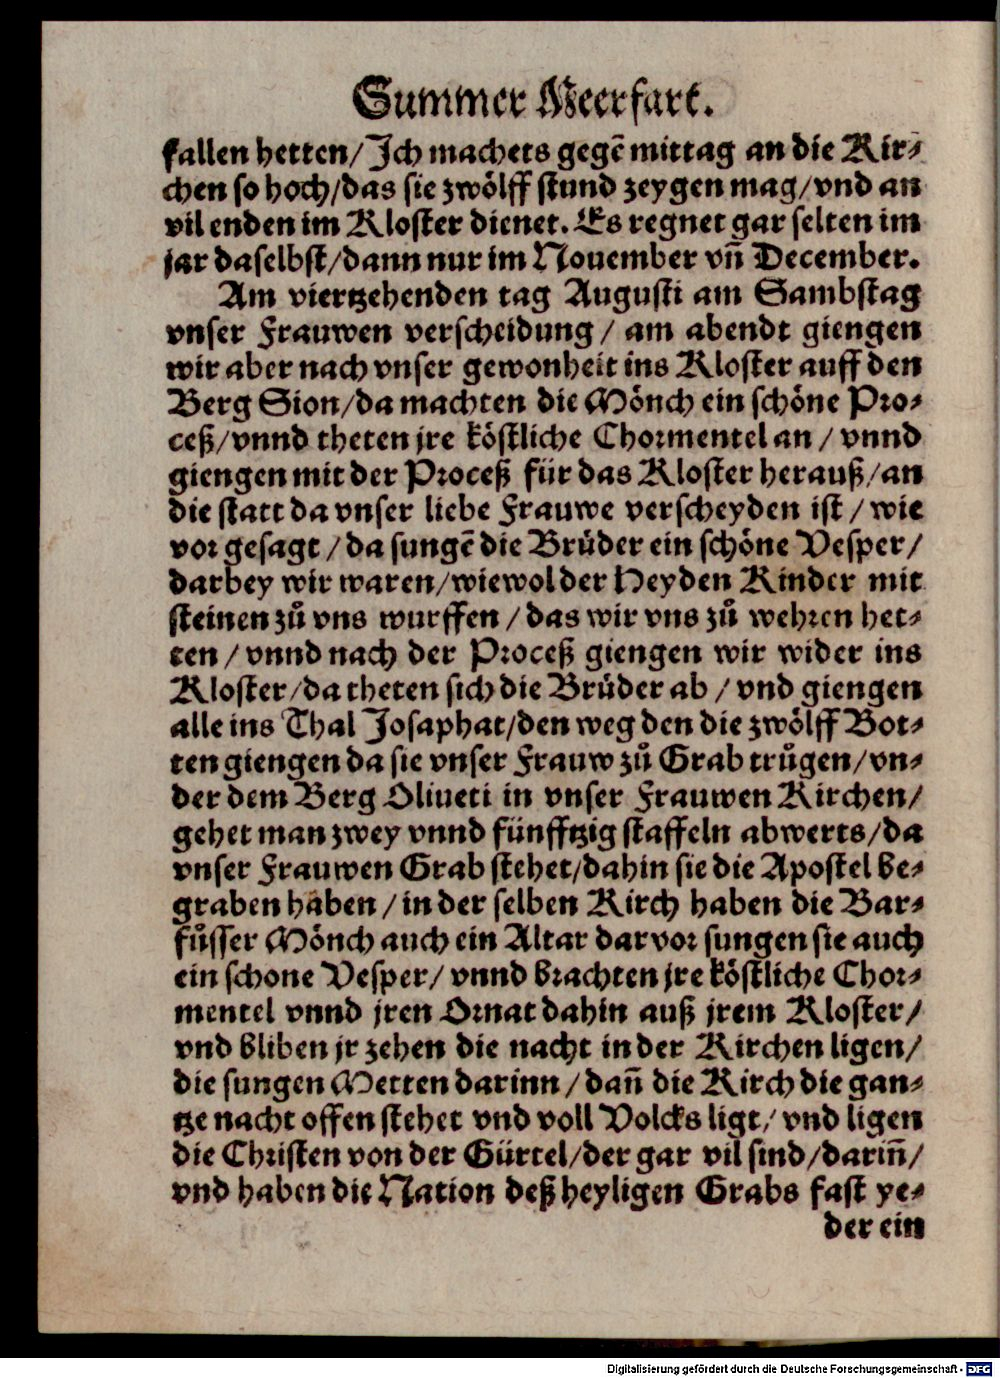 Summer Meerfart.
fallen hetten/ Ich machets gegē mittag an die Kir⸗
chen so hoch/das sie zwölff stund zeygen mag/vnd an
vil enden im Kloster dienet. Es regnet gar selten im
jar daselbst/dann nur im Nouember vñ December.
Am viertzehenden tag Augusti am Sambstag
vnser Frauwen verscheidung / am abendt giengen
wir aber nach vnser gewonheit ins Kloster auff den
Berg Sion/da machten die Mönch ein schöne Pro⸗
ceß/vnnd theten jre köstliche Chormentel an / vnnd
giengen mit der Proceß für das Kloster herauß/an
die statt da vnser liebe Frauwe verscheyden ist / wie
vor gesagt / da sungē die Brůder ein schöne Vesper/
darbey wir waren/wiewol der Heyden Kinder mit
steinen zů vns wurffen / das wir vns zů wehren het⸗
ten / vnnd nach der Proceß giengen wir wider ins
Kloster/da theten sich die Brůder ab / vnd giengen
alle ins Thal Josaphat/den weg den die zwölff Bot⸗
ten giengen da sie vnser Frauw zů Grab trůgen/vn⸗
der dem Berg Oliueti in vnser Frauwen Kirchen/
gehet man zwey vnnd fünfftzig staffeln abwerts/da
vnser Frauwen Grab stehet/dahin sie die Apostel be⸗
graben haben / in der selben Kirch haben die Bar⸗
fůsser Mönch auch ein Altar darvor sungen sie auch
ein schone Vesper/ vnnd brachten jre köstliche Chor⸗
mentel vnnd jren Ornat dahin auß jrem Kloster/
vnd bliben jr zehen die nacht in der Kirchen ligen/
die sungen Metten darinn / dañ die Kirch die gan⸗
tze nacht offen stehet vnd voll Volcks ligt/ vnd ligen
die Christen von der Gürtel/der gar vil sind/dariñ/
vnd haben die Nation deß heyligen Grabs fast ye⸗
der ein
Digitalisierung gefördert durch die Deutsche Forschungsgemeinschaft - DFG